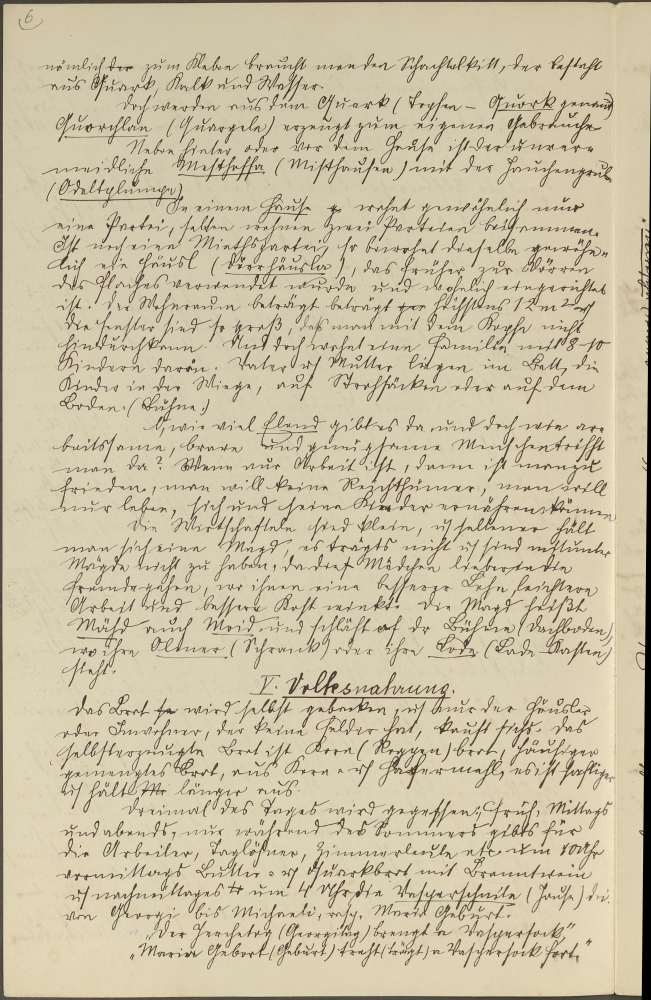 6
nämlich der zum Kleben braucht man den Schachtelkitt, der besteht
aus Quark, Kalk und Wasser.
Doch werden aus dem Quark (Topfen – Quork genannt)
Quorchlan (Quargeln) erzeugt zum eigenen Gebrauche
Neben hinter oder vor dem Hause ist der unver-
meidliche Mesthoffa (Misthaufen) mit der Jauchengrube
(Odeltplumpa)
In einem Hause wohnt gewöhnlich nur
eine Partei, selten wohnen zwei Parteien beisammen.
Ist noch eine Miethspartei, so bewohnt dieselbe gewöhn-
lich ein Häusl (Dörrhäusla), das früher zur Dörren
des Flachses verwendet wurde und wohnlich eingerichtet
ist. Der Wohnraum beträgt beträgt höchstens 12 m² u.
die Fenster sind so groß, daß man mit dem Kopfe nicht
hindurchkann. Und doch wohnt eine Familie mit 8–10
Kindern darin. Vater u. Mutter liegen im Bett, die
Kinder in der Wiege, auf Strohsäcken oder auf dem
Boden. (Bühne.)
O, wie viel Elend gibt es da und doch wie ar-
beitssame, brave und genügsame Menschen trifft
man da? Wenn nur Arbeit ist, dann ist man zu
frieden, man will keine Reichthümer, man will
nur leben, sich und seine Kinder ernähren können
Die Wirtschaften sind klein, u. seltener hält
man sich eine Magd, es trägts nicht u. sind mitunter
Mägde nicht zu haben, da die Mädchen lieber in die
Fremde gehen, wo ihnen eine besserer Lohn, leichtere
Arbeit und bessere Kost winkt. Die Magd heißt
Mahd auch Moid und schläft af dr Bühne (Dachboden),
wo ihre Olmer (Schrank) oder ihre Lode (Lade-Kasten)
steht.
V. Volksnahrung.
Das Brot wird selbst gebacken, u. nur der Häusler
oder Inwohner, der keine Felder hat, kauft sichs. Das
selbsterzeugte Brot ist Korn (Roggen) brot, häufiger
gemengtes Brot, aus Korn- u. Hafermehl, es ist haftiger
u. hält länger aus.
Dreimal des Tages wird gegessen; früh, Mittags
und abends, nur während des Sommers gibts für
die Arbeiter, Taglöhner, Zimmerleute etc. um 10 Uhr
vormittags Butter- u. Quarkbrot mit Branntwein
u. nachmittages um 4 Uhr die Vesperschnite (Jause) d.i.
von Georgi bis Michaeli, resp. Mariä Geburt.
„Der Gerchetog (Georgitag) brengt a Vaspersock"
„Maria Gebort (Geburt) traht (trägt) a Vaspersock fort."